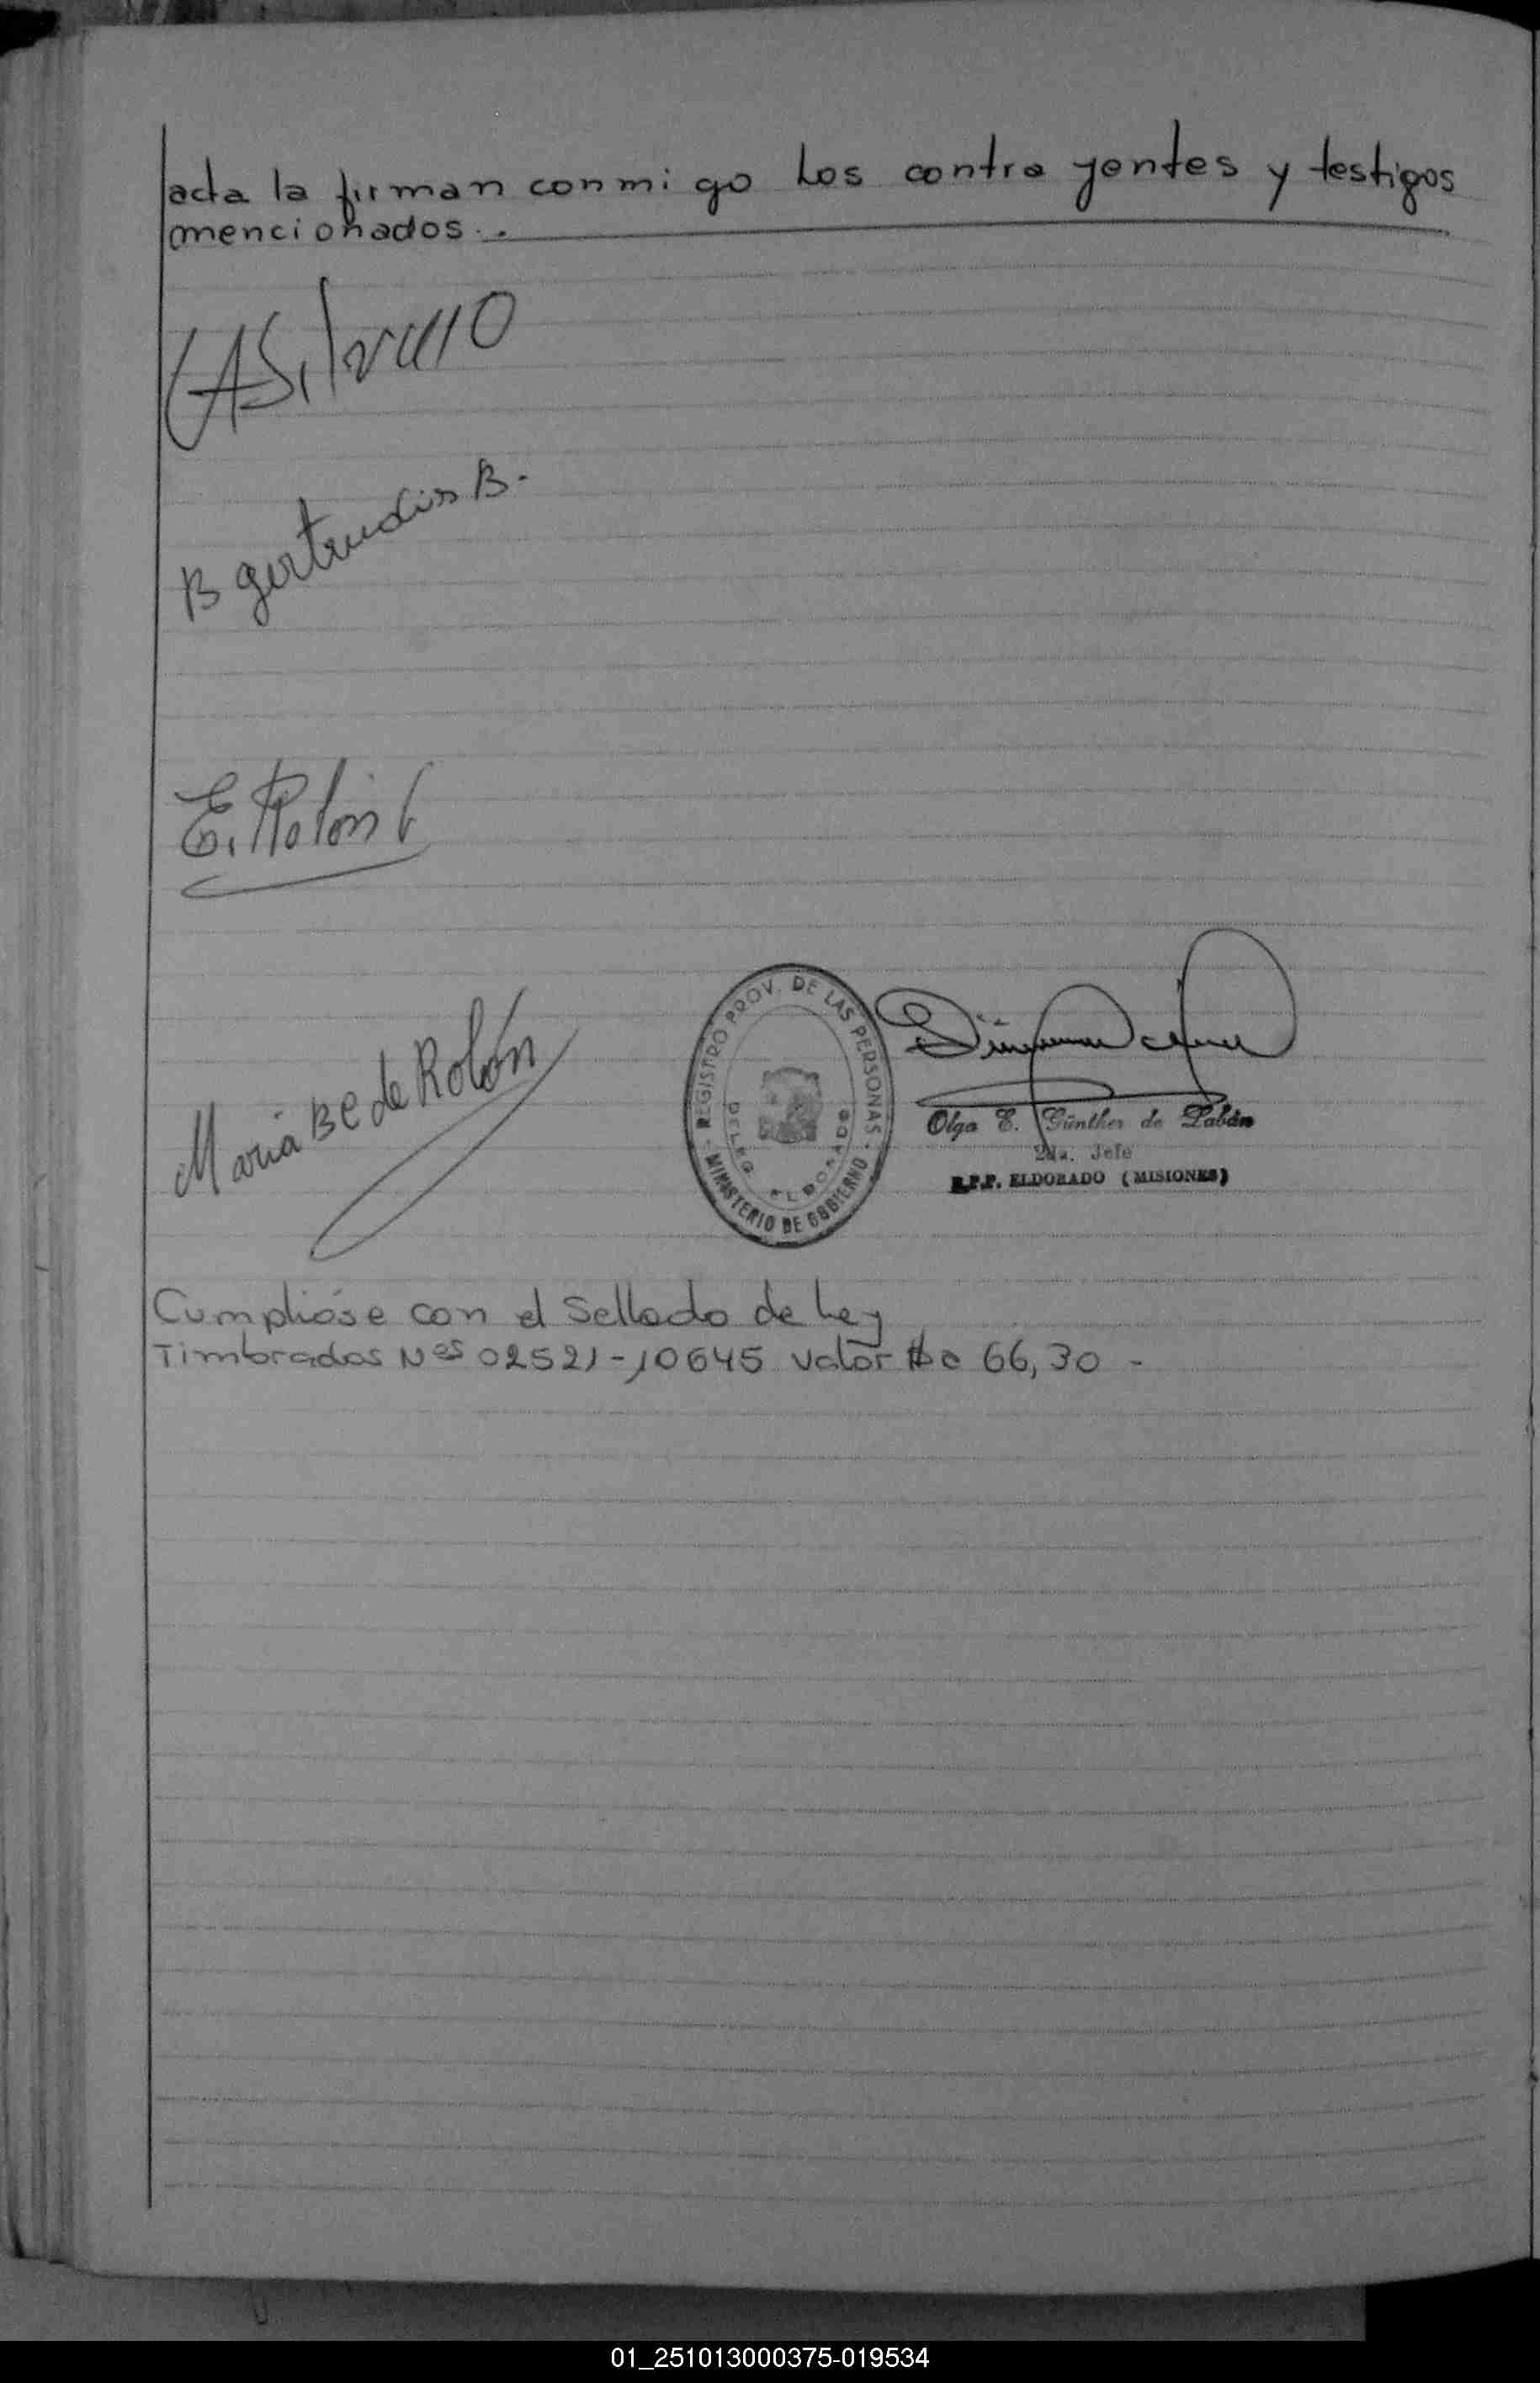 acta la firman conmigo los contrayentes y testigos
mencionados..
B gertrudis B.
E. Rolón
María BC de Rolón
REGISTRO PROV. DE LAS PERSONAS
DELEG. ELDORADO
MINISTERIO DE GOBIERNO
Olga E. Günther de Pabán
2da. Jefe
R.P.P. ELDORADO (MISIONES)
Cumplióse con el Sellado de Ley
Timbrados Nes 02521-10645 valor $a 66,30 -
01_251013000375-019534